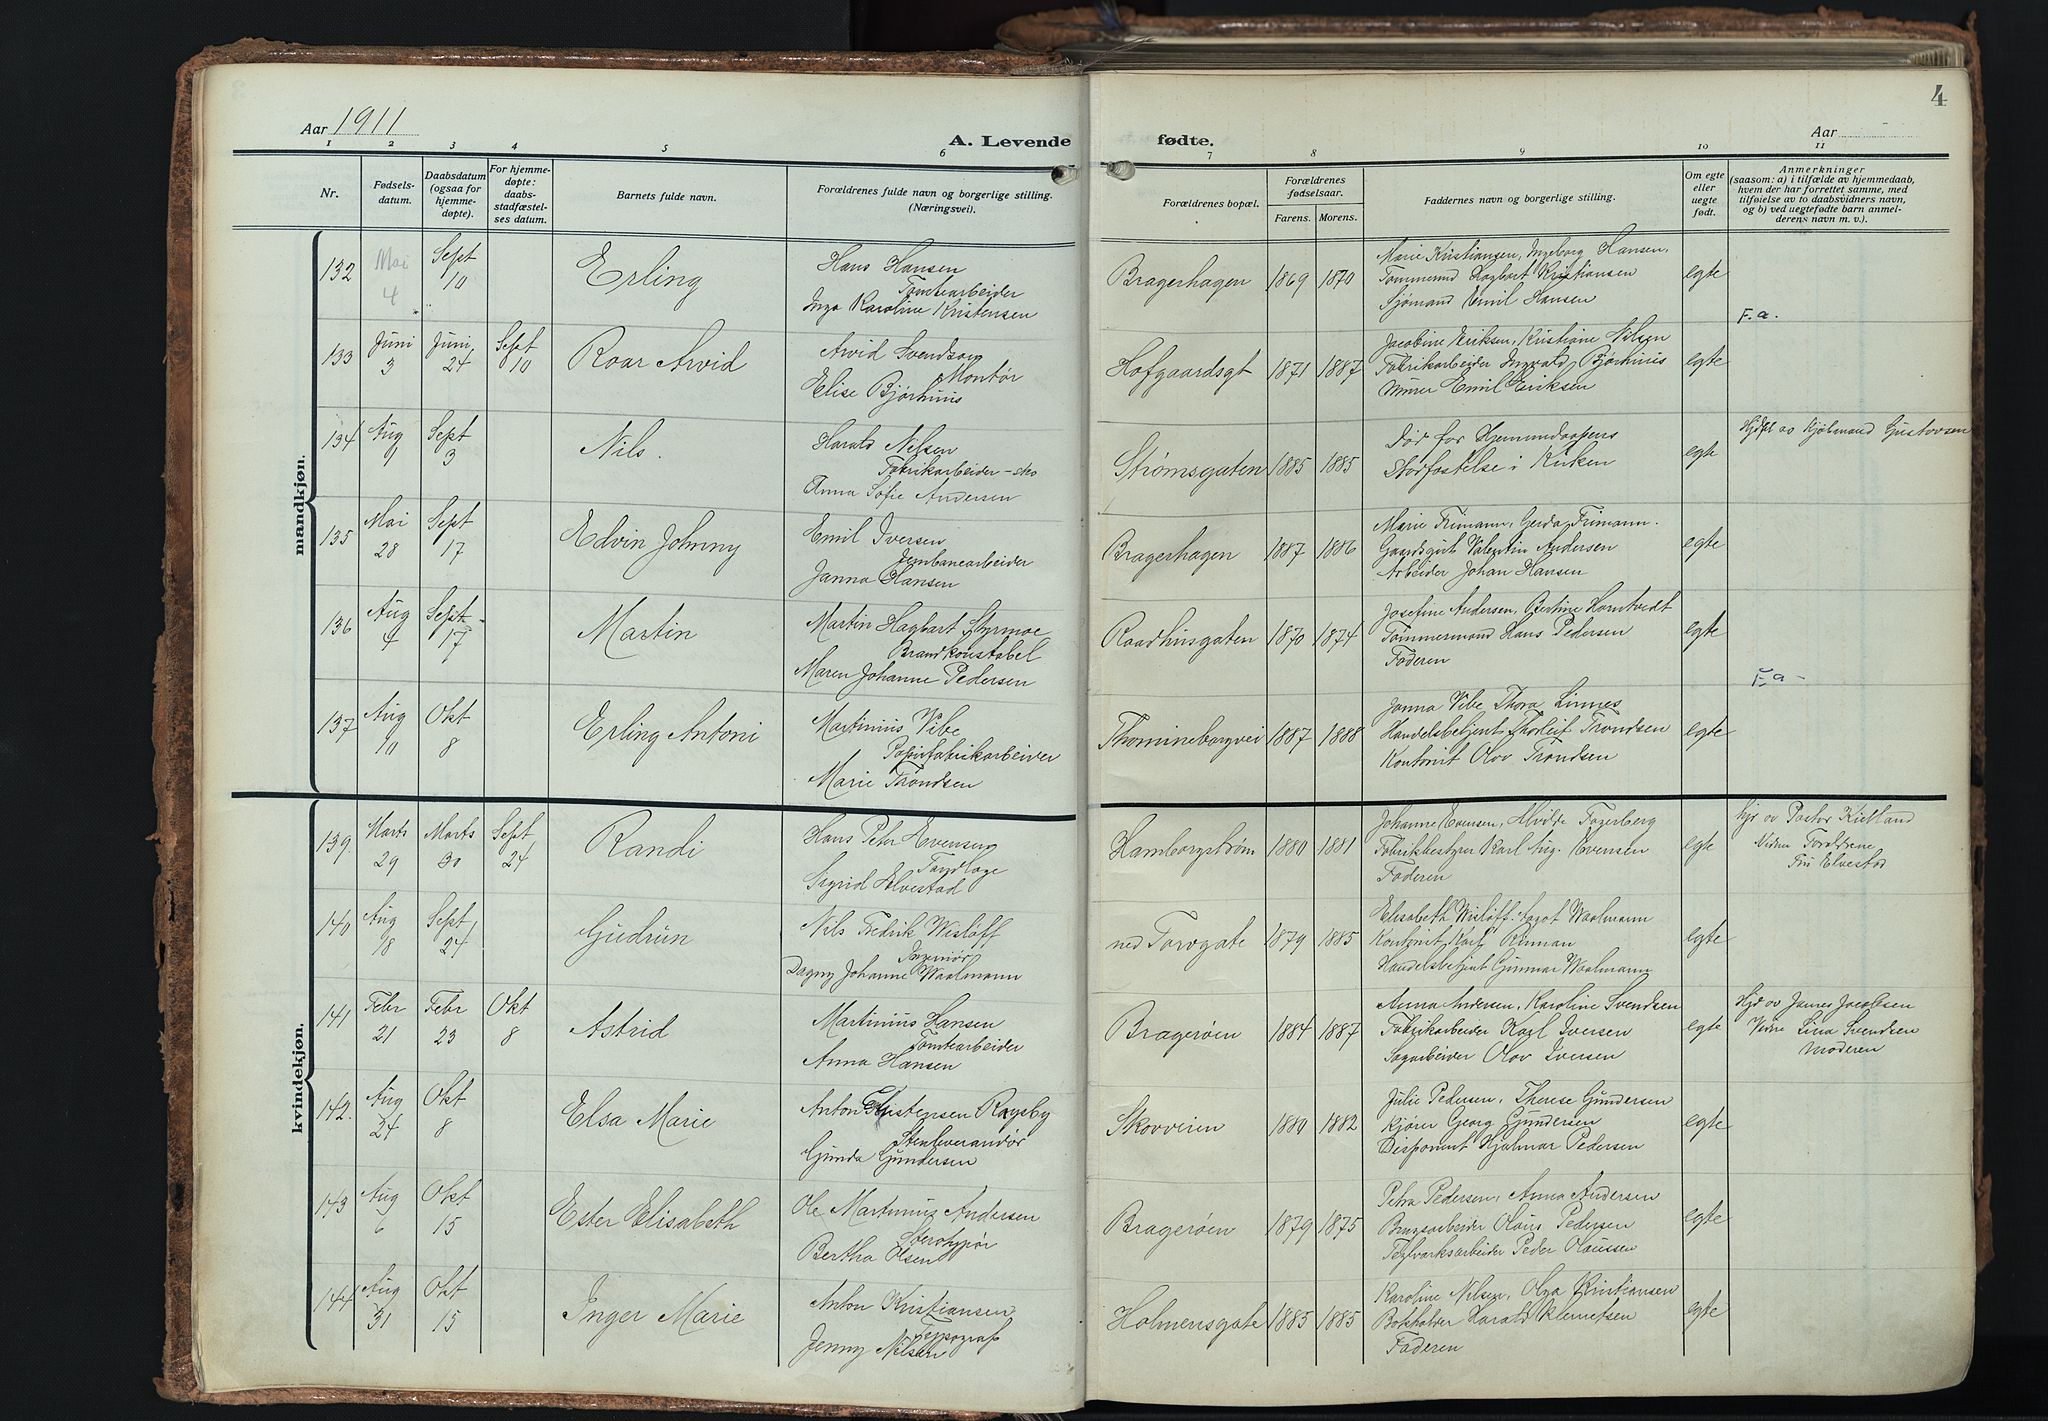 Aar 1911
A. Levende fødte.
Aar
4
1 2 3 4 5 6 7 8 9 10 11
Nr.
Fødsels-
datum.
Daabsdatum
(ogsaa for
hjemme-
døpte).
For hjemme-
døpte:
daabs-
stadfæstel-
ses datum.
Barnets fulde navn.
Forældrenes fulde navn og borgerlige stilling.
(Næringsvei).
Forældrenes bopæl.
Forældrenes
fødselsaar.
Farens. Morens.
Faddernes navn og borgerlige stilling.
Om egte
eller
uegte
født.
Anmerkninger
(saasom: a) i tilfælde av hjemmedaab,
hvem der har forrettet samme, med
tilføielse av to daabsvidners navn,
og b) ved uegtefødte barn anmel-
derens navn m. v.).
mandkjøn.
132 Mai 4 Sept 10 Erling
Hans Hansen
Tomtearbeider
Inga Karoline Kristensen
Bragerhagen 1869 1870
Marie Kristiansen, Ingeborg Hansen,
Tømmermd Hagbart Kristiansen
Sjømand Emil Hansen
egte
F.a.
133 Juni 3 Juni 24 Sept 10 Roar Arvid
Arvid Svendsen
Montør
Elise Bjørhuus
Hofgaardsgt 1871 1887
Jacobine Eriksen, Kristiane Nilsen
Fabrikarbeider Ingvald Bjørhuus
Murer Emil Eriksen
egte
134 Aug 9 Sept 3 Nils.
Harald Nilsen
Fabrikarbeider
Anna Sofie Andersen
Strømsgaten 1885 1885
Død før Hjemmedaapens
Stadfæstelse i Kirken
egte
Hjdpt av Gustavsen
135 Mai 28 Sept 17 Edvin Johnny
Emil Iversen
Jernbanearbeider
Janna Hansen
Bragerhagen 1887 1886
Marie Frimann, Gerda Frimann.
Gaardsgut Valentin Andersen
Arbeider Johan Hansen
egte
136 Aug 4 Sept 17 Martin
Martin Hagbart Styrmoe
Brandkonstabel
Maren Johanne Pedersen
Raadhusgaten 1870 1874
Josefine Andersen, Bertine Horntvedt
Tømmermand Hans Pedersen
Faderen
egte
F.a.
137 Aug 10 Okt 8 Erling Antoni
Martinius Vibe
Papirfabrikarbeider
Marie Trondsen
Thomineborgvei 1887 1888
Janna Vibe Thora Linnes
Handelsbetjent Thorleif Trondsen
Kontorist Olav Trondsen
egte
kvindekjøn.
139 Marts 29 Marts 30 Sept 24 Randi
Hans Peter Evensen
Tandlæge
Sigrid Elvestad
Hamborgstrøm 1880 1881
Johanne Evensen, Alvilde Fagerberg
Fabrikbestyrer Karl Aug. Evensen
Faderen
egte
hjd av Pastor Kielland
Vidner Forældrene
Fru Elvestad
140 Aug 18 Sept 24 Gudrun
Nils Fredrik Wisløff
Ingeniør
Dagny Johanne Waalmann
ned Torvgate 1879 1885
Elisabeth Wisløff, Aagot Waalmann
Kontorist Karl Rinnan
Handelsbetjent Gunnar Waalmann
egte
141 Febr 21 Febr 23 Okt 8 Astrid
Martinius Hansen
Tomtearbeider
Anna Hansen
Bragerøen 1884 1887
Anna Andersen, Karoline Svendsen
Fabrikarbeider Karl Iversen
Sagarbeider Olav Iversen
egte
Hjd av James Jacobsen
Vidne Lina Svendsen
Moderen
142. Aug 24 Okt 8 Elsa Marie
Anton Kristensen Røgsby
Stenleverandør
Gunda Gundersen
Skovveien 1880 1882
Julie Pedersen, Therese Gundersen
Kjører Georg Gundersen
Disponent Hjalmar Pedersen
egte
143 Aug 6 Okt 15 Ester Elisabeth
Ole Martinius Andersen
Stereotypør
Bertha Olsen
Bragerøen 1879 1875
Petra Pedersen, Anna Andersen
Brugsarbeider Olaus Pedersen
Teglverksarbeider Peder Olaussen
egte
144 Aug 31 Okt 15 Inger Marie
Anton Kristiansen
Typograf
Jenny Nilsen
Holmensgate 1885 1885
Karoline Nilsen, Olga Kristiansen
Bokholder Harald Klemetsen
Faderen
egte